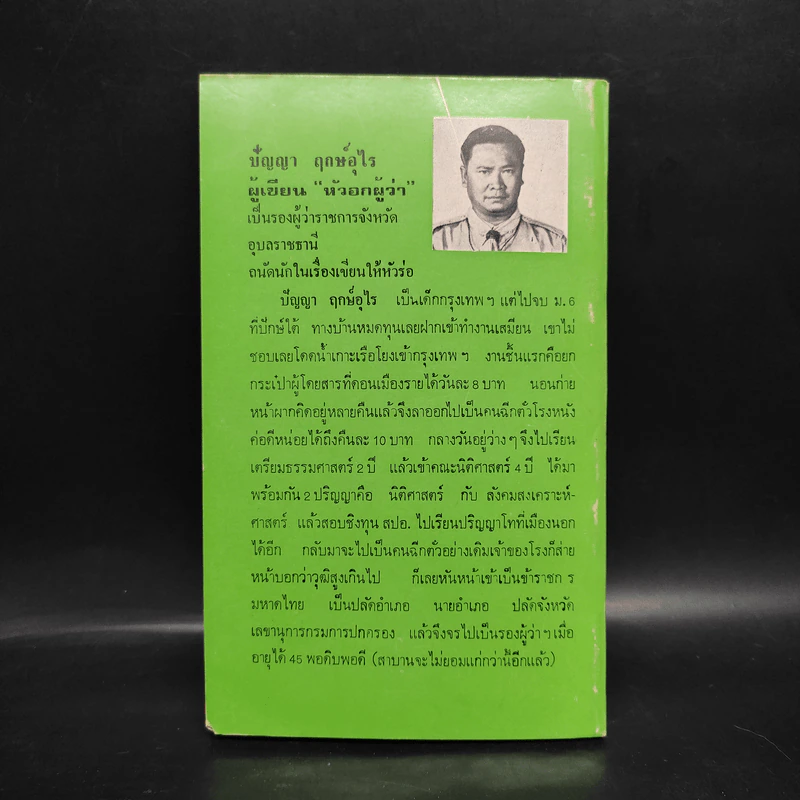 ปัญญา ฤกษ์อุไร
ผู้เขียน "หัวอกผู้ว่า"
เป็นรองผู้ว่าราชการจังหวัด
อุบลราชธานี
ถนัดนักในเรื่องเขียนให้หัวร่อ
ปัญญา ฤกษ์อุไร เป็นเด็กกรุงเทพ ฯ แต่ไปจบ ม. 6
ที่ปักษ์ใต้ ทางบ้านหมดทุนเลยฝากเข้าทำงานเสมียน เขาไม่
ชอบเลยโดดน้ำเกาะเรือโยงเข้ากรุงเทพ ฯ งานชิ้นแรกคือยก
กระเป๋าผู้โดยสารที่ดอนเมืองรายได้วันละ 8 บาท นอนก่าย
หน้าผากคิดอยู่หลายคืนแล้วจึงลาออกไปเป็นคนฉีกตั๋วโรงหนัง
ค่อยดีหน่อยได้ถึงคืนละ 10 บาท กลางวันอยู่ว่าง ๆ จึงไปเรียน
เตรียมธรรมศาสตร์ 2 ปี แล้วเข้าคณะนิติศาสตร์ 4 ปี ได้มา
พร้อมกัน 2 ปริญญาคือ นิติศาสตร์ กับ สังคมสงเคราะห์-
ศาสตร์ แล้วสอบชิงทุน สปอ. ไปเรียนปริญญาโทที่เมืองนอก
ได้อีก กลับมาจะไปเป็นคนฉีกตั๋วอย่างเดิมเจ้าของโรงก็ส่าย
หน้าบอกว่าวุฒิสูงเกินไป ก็เลยหันหน้าเข้าเป็นข้าราชก ร
มหาดไทย เป็นปลัดอำเภอ นายอำเภอ ปลัดจังหวัด
เลขานุการกรมการปกครอง แล้วจึงจรไปเป็นรองผู้ว่า ฯ เมื่อ
อายุได้ 45 พอดิบพอดี (สาบานจะไม่ยอมแก่กว่านี้อีกแล้ว)